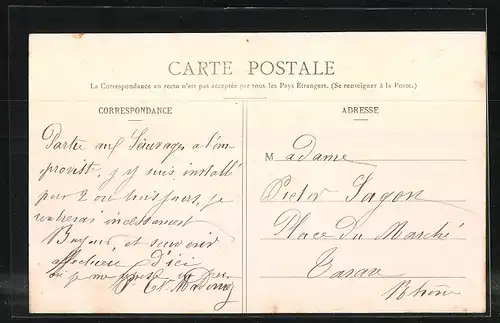 CARTE POSTALE
La Correspondance au recto n'est pas acceptée par tous les Pays Étrangers. (Se renseigner à la Poste.)
CORRESPONDANCE
Partie aux Sauvages a l'im
proviste, j'y suis installé
pour 2 ou trois jours, je
rentrerai incessament
et souvenir
affectueux d'ici
où je me
ADRESSE
Madame
Victor Sagon
Place du Marché
Tarare
Rhône